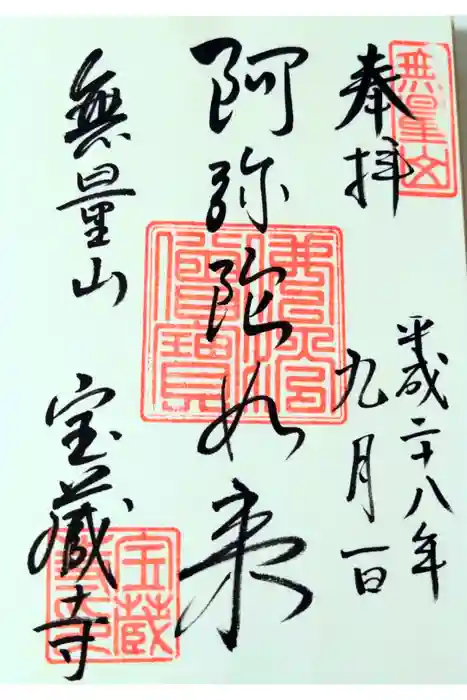 無量山
奉拝
平成二十八年
九月一日
阿弥陀如来
佛法僧寶
無量山 宝蔵寺
宝蔵